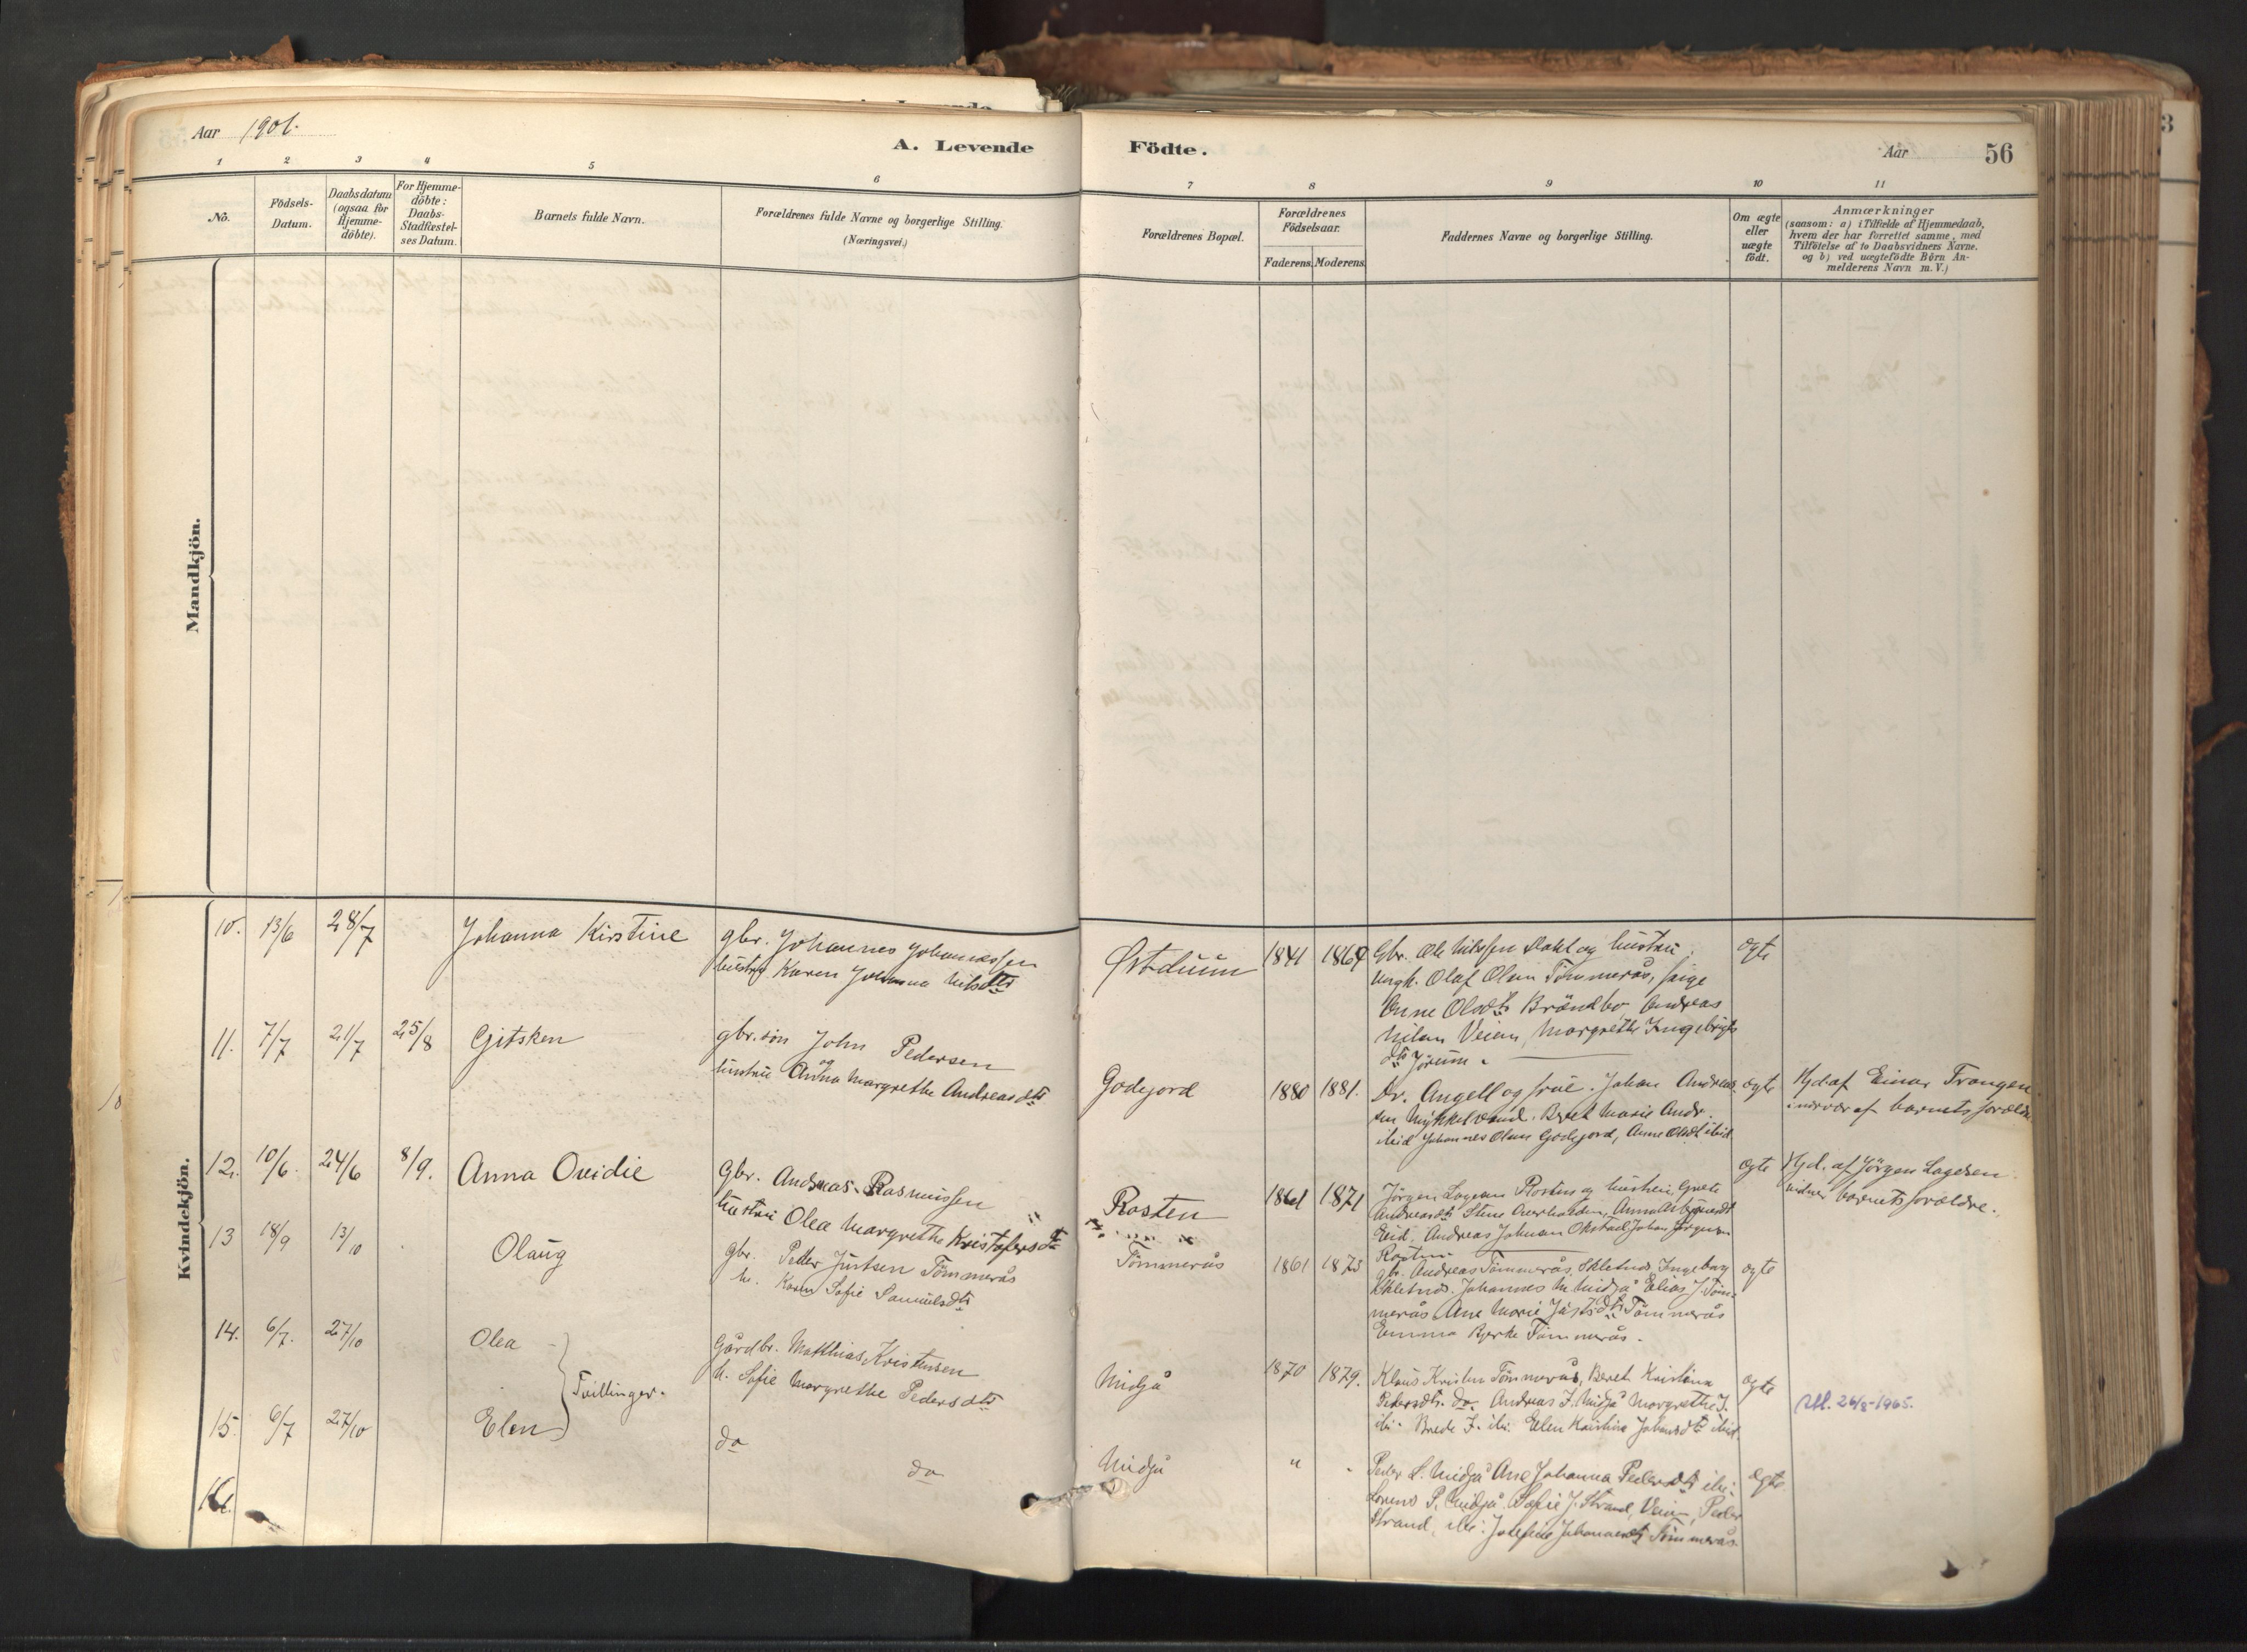 Aar 1901.
A. Levende Födte.
Aar 56
1 2 3 4 5 6 7 8 9 10 11
No.
Födsels-
Datum.
Daabsdatum
(ogsaa for
Hjemme-
döbte).
For Hjemme-
döbte:
Daabs-
Stadfæstel-
ses Datum.
Barnets fulde Navn.
Forældrenes fulde Navne og borgerlige Stilling.
(Næringsvei.)
Forældrenes Bopæl.
Forældrenes
Födselsaar.
Faderens. Moderens.
Faddernes Navne og borgerlige Stilling.
Om ægte
eller
uægte
födt.
Anmærkninger
(saasom: a) i Tilfælde af Hjemmedaab,
hvem der har forrettet samme, med
Tilföielse af to Daabsvidners Navne.
og b) ved uægtefödte Börn An-
melderens Navn m. V.)
Mandkjön.
Kvindekjön.
10. 13/6 28/7 Johanna Kirstine
gbr. Johannes Johannessen
hustru Karen Johanna Nilsdtr
Østduun 1841 1864
Gbr. Ole Nilssen og hustru,
ungk. Olaf Olsen Tömmerås, pige
Anne Olsdtr Brändbo, Andreas
Nilsen Veiem, Margrethe Ingebrigts
dtr Jörum.
ægte
11. 7/7 21/7 25/8 Gitsken
gbr.sön John Pedersen
og
hustru Anna Margrethe Andreasdtr
Godejord 1880 1881.
Dr. Angell og frue. Johan Andreas
sen Mykkelvand. Beret Marie Andr.
ibid Johannes Olsen Godejord, Anne Olsdtr ibid.
ægte
Hjd. af Einar Trangen
i nærvær af barnets forældre.
12. 10/6. 24/6 8/9. Anna Ovidie
Gbr. Andreas Rasmussen
hustru Olea Margrethe Kristofersdtr
Rosten 1861 1871
Jörgen Rosten og hustru, Grete
Andreasdtr Stene
Eid. Andreas Johnsen Johan Jörgensen
Rosten
ægte
Hjd. af Jörgen Lagesen.
vidner barnets forældre.
13 18/9 13/10 Olaug
gbr. Peder Justsen Tömmerås
h. Karen Sofie Samuelsdtr
Tömmerås 1861 1873
gbr. Andreas Tömmerås, Ingeborg
Johannes M. Midjå Elias J. Töm-
merås Ane Marie Justsdtr Tömmerås
Emma Bjerke Tömmerås.
ægte
14. 6/7. 27/10 Olea
Tvillinger.
Gårdbr. Matthias Kristensen
h. Sofie Margrethe Pedersdtr
Midjå 1870 1879.
Klaus Kristen Tömmerås, Beret Kristina
Pedersdtr. do. Andreas J. Midjå Margrethe J.
ibi. Brede J. ibi. Elen Kristine Johansdtr ibid.
ægte
26/8-1965.
15. 6/7 27/10 Elen
do do
Midjå "
Peder L. Midjå Ane Johanna Pedersdtr ibi.
Lorens P. Midjå. Sofie J. Strand, Veiem, Peder
Strand, ibi: Josefine Johannesdtr Tömmerås.
ægte
16.